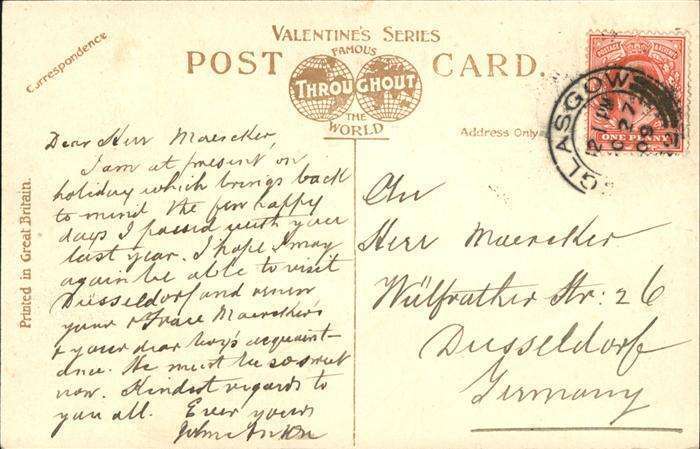 Correspondence
VALENTINE'S SERIES
POST CARD.
FAMOUS
THROUGHOUT
THE
WORLD
Address Only
Printed in Great Britain.
GLASGOW
12 AM
27
09
POSTAGE & REVENUE
ONE PENNY
Dear Herr Maercker,
I am at present on
holiday which brings back
to mind the few happy
days I passed with you
last year. I hope I may
again be able to visit
Düsseldorf and renew
your & Frau Maercker's
& your dear boy's acquaint-
ance. He must be so sweet
now. Kindest regards to
you all. Ever yours
John
An
Herr Maercker
Wülfrather Str: 26
Dusseldorf
Germany